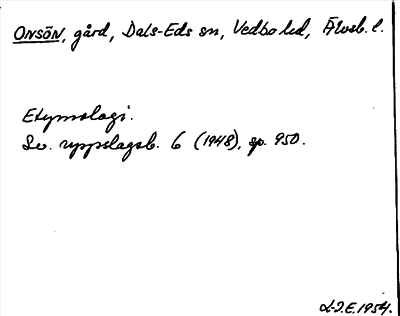 ONSÖN, gård, Dals-Eds sn, Vedbo hd, Älvsb. l.
Etymologi.
Sv. uppslagsb. 6 (1948), sp. 950.
L-I.E. 1954.